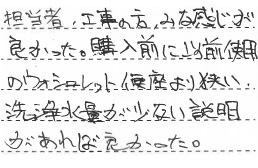 担当者、工事の方、みな感じが
良かった。購入前に当前使用
のウォシュレット便座より狭い、
洗浄水量が少ない説明
があれば良かった。